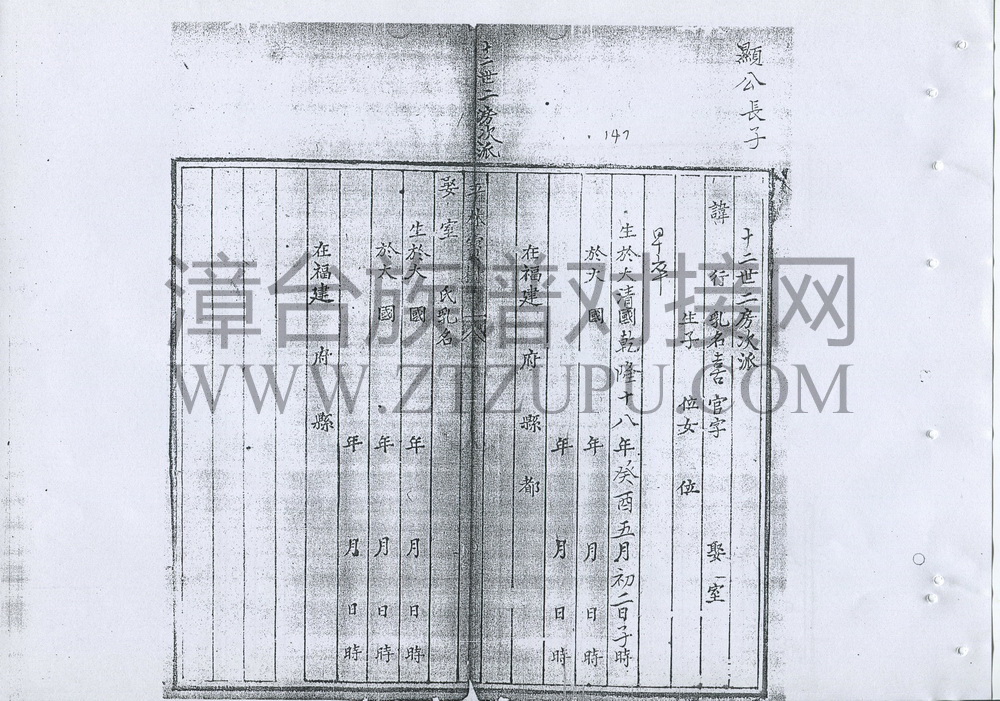 顯公長子
147
十二世二房次派
諱 行 乳名喜官字 娶 室
生子 位女 位
早卒
生於大清國乾隆十八年癸酉五月初二日子時
於大 國 年 月 日 時
年 月 日 時
在福建 府 縣 都
十二世二房次派
娶 室 氏乳名
生於大 國 年 月 日 時
於大 國 年 月 日 時
年 月 日 時
在福建 府 縣
漳台族谱对接网
WWW.ZTZUPU.COM